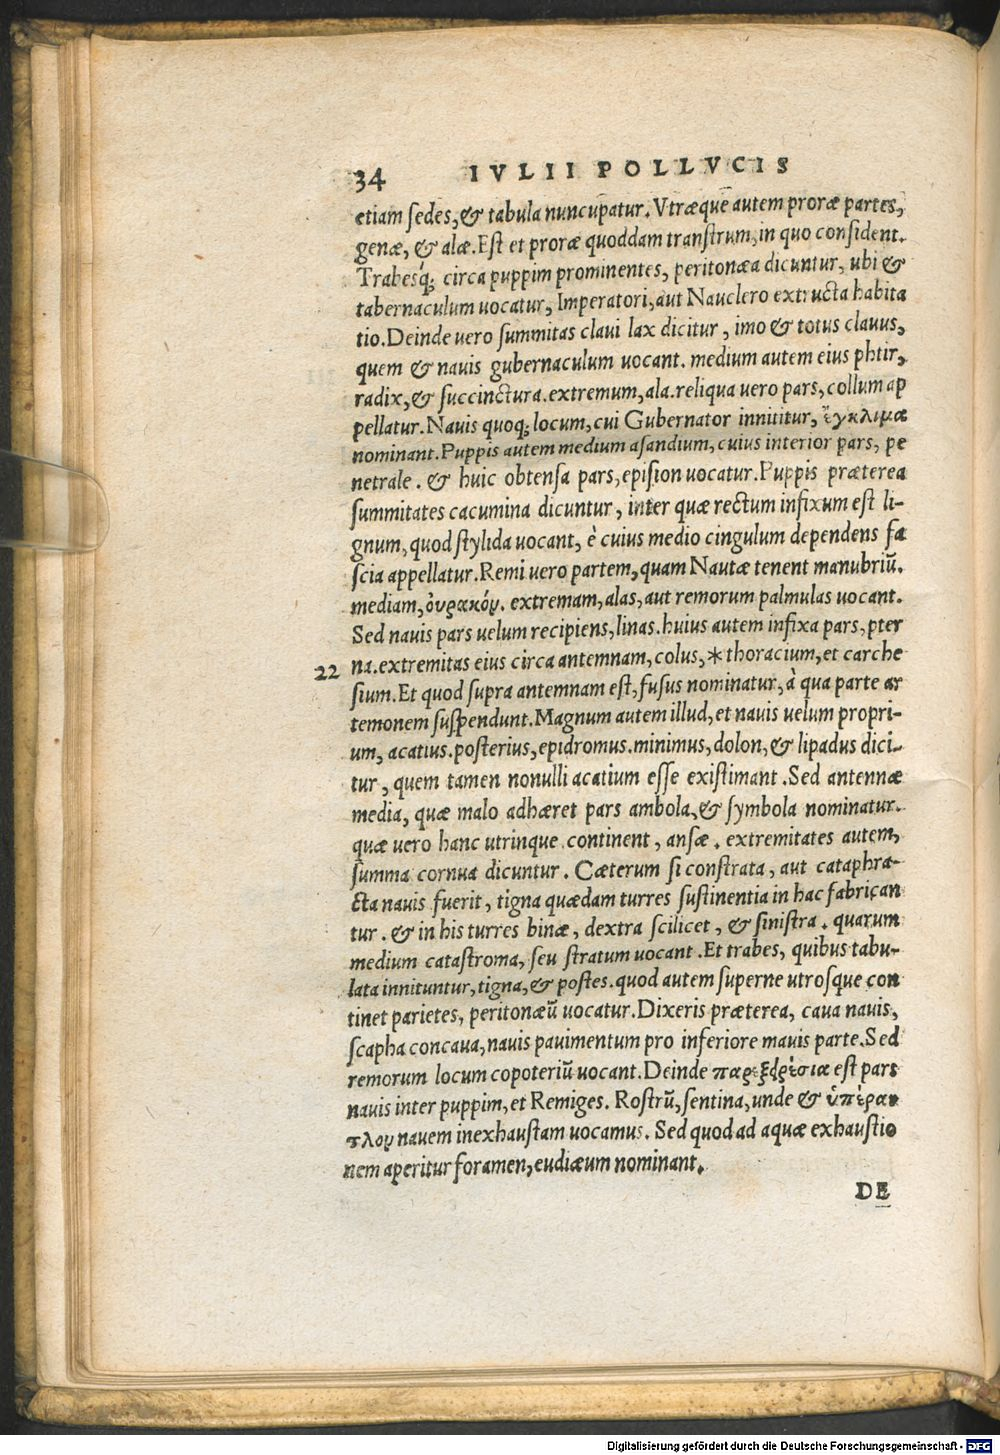 34 IVLII POLLVCIS
etiam sedes, & tabula nuncupatur. Vtræque autem proræ partes,
genæ, & alæ. Est et proræ quoddam transtrum, in quo consident.
Trabesq́; circa puppim prominentes, peritonæa dicuntur, ubi &
tabernaculum uocatur, Imperatori, aut Nauclero extructa habita
tio. Deinde uero summitas claui lax dicitur, imo & totus clauus,
quem & nauis gubernaculum uocant. medium autem eius phtir,
radix, & succinctura. extremum, ala. reliqua uero pars, collum ap
pellatur. Nauis quoq; locum, cui Gubernator innititur, ἔγκλιμα
nominant. Puppis autem medium asandium, cuius interior pars, pe
netrale. & huic obtensa pars, epision uocatur. Puppis præterea
summitates cacumina dicuntur, inter quæ rectum infixum est li-
gnum, quod stylida uocant, è cuius medio cingulum dependens fa
scia appellatur. Remi uero partem, quam Nautæ tenent manubriũ.
mediam, οὐρακόν. extremam, alas, aut remorum palmulas uocant.
Sed nauis pars uelum recipiens, linas. huius autem infixa pars, pter
22 na. extremitas eius circa antemnam, colus, * thoracium, et carche
sium. Et quod supra antemnam est, fusus nominatur, à qua parte ar
temonem suspendunt. Magnum autem illud, et nauis uelum propri-
um, acatius. posterius, epidromus. minimus, dolon, & lipadus dici-
tur, quem tamen nonulli acatium esse existimant. Sed antennæ
media, quæ malo adhæret pars ambola, & symbola nominatur.
quæ uero hanc utrinque continent, ansæ. extremitates autem,
summa cornua dicuntur. Cæterum si constrata, aut cataphra-
cta nauis fuerit, tigna quædam turres sustinentia in hac fabrican
tur. & in his turres binæ, dextra scilicet, & sinistra. quarum
medium catastroma, seu stratum uocant. Et trabes, quibus tabu-
lata innituntur, tigna, & postes. quod autem superne utrosque con
tinet parietes, peritonæũ uocatur. Dixeris præterea, caua nauis,
scapha concaua, nauis pauimentum pro inferiore mauis parte. Sed
remorum locum copoteriũ uocant. Deinde παρεξερεσία est pars
nauis inter puppim, et Remiges. Rostrũ, sentina, unde & ὑπέραν
τλον nauem inexhaustam uocamus. Sed quod ad aquæ exhaustio
nem aperitur foramen, eudiæum nominant.
DE
Digitalisierung gefördert durch die Deutsche Forschungsgemeinschaft - DFG